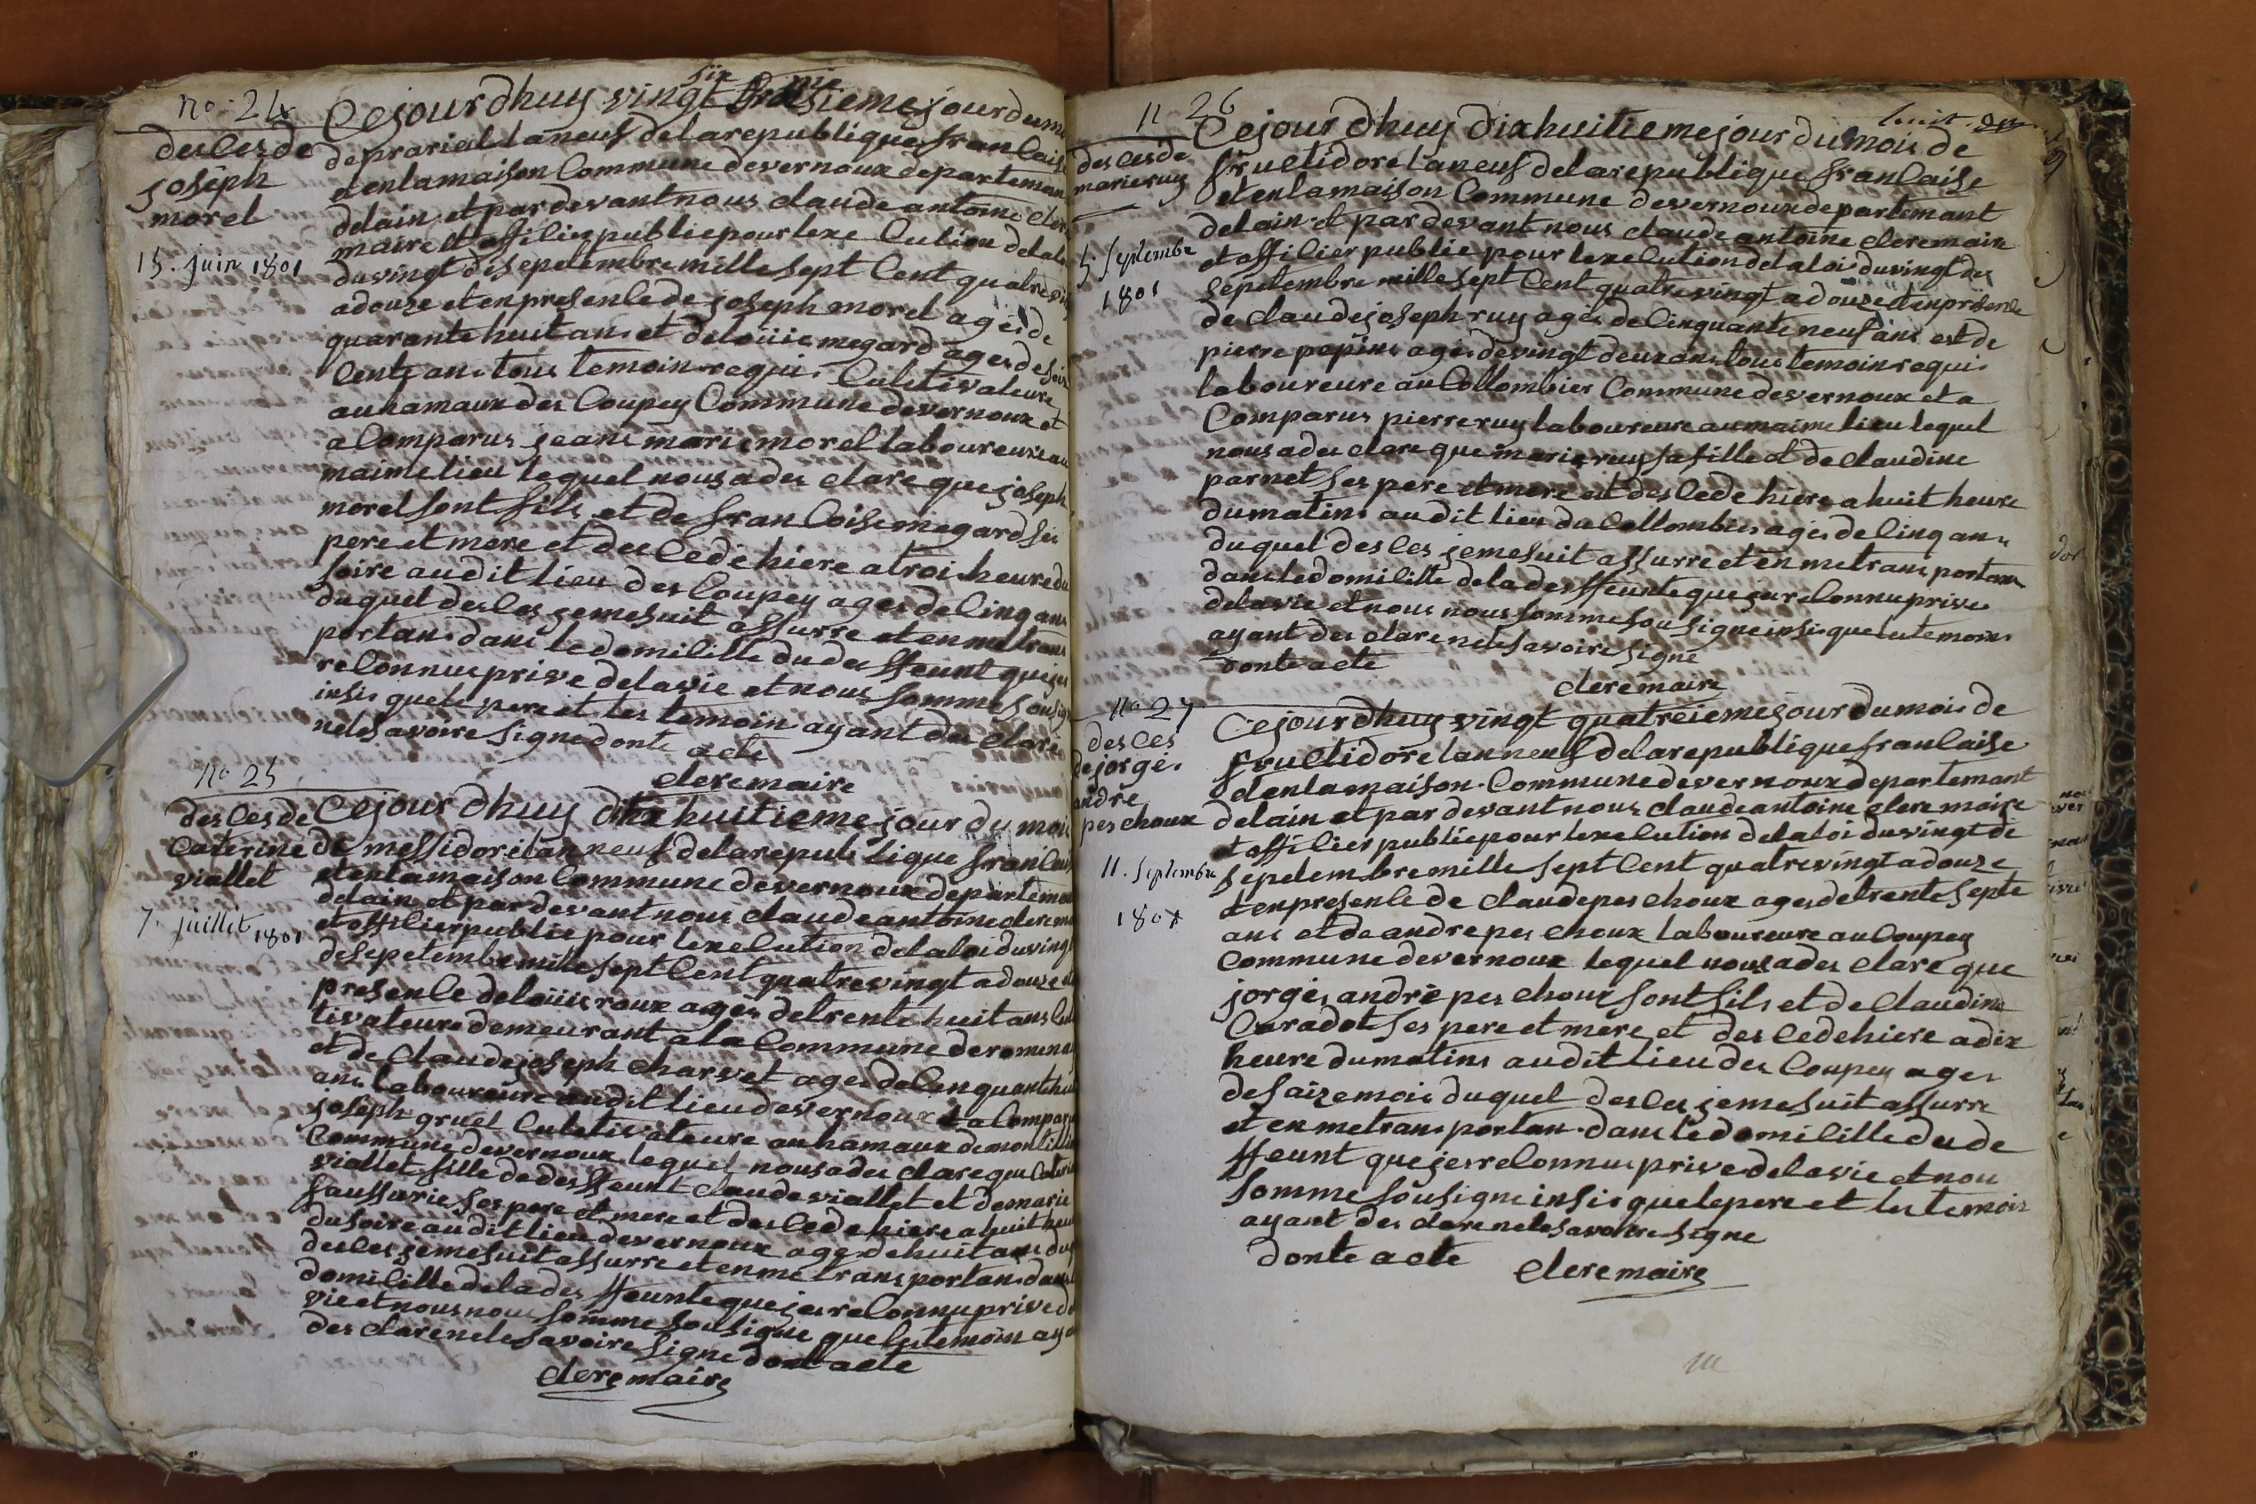 no. 24
desces de
joseph
morel
15. juin 1801
Cejourdhuy vingt six nie jour du
de prarial lan neuf de la republique francais
et en la maison Commune de vernoux departeman
de lain et par devant nous claude antoine clere
maire et officier public pour lexecution de la loi
du vingt de sepetembre mille sept cent quatre vin
a douze et en presence de joseph morel ages de
quarante huit ans et de loüiie megard ages de
cente ans tous temoin requi. Culetivateure
au hamaux des Coupey Commune de vernoux et
a Comparus jeans marie morel laboureure au
maime lieu lequel nous a des clare que joseph
morel sont fils et de francoise megard ses
pere et mere et des cede hiere a troi heure du
soire au dit lieu des Coupey ages de cinq ans
duquel desces je me suit assurre et en me trans
portan dans le domicille du des ffeunt que jes
reconnus prive de la vie et nous somme sousign
insis que le pere et les temoin ayant des clare
ne le savoire signe donte acte
clere maire
no 25
desces de
Caterine
viallet
7. juillet 1801
Cejourdhuy dix huitieme jour du moi
de messidore lan neuf de la republique francais
et en la maison Commune de vernoux departeman
de lain et par devant nous claude antoine clere ma
et officier public pour lexecution de la loi du vingt
de sepetembre mille sept Cent quatre vingt a douze et
presence de loüiis roux ages de trente huit ans Cul
tivateure demeurant a la Commune de romena
et de Claude joseph charvet ages de cenquante hui
ans laboureure au dit lieu de vernoux et a Compar
joseph gruel Culetivateure au hamaux de montcilli
Commune de vernoux lequel nous a des clare que Cateri
viallet fille de des ffeunt Claude viallet et de marie
faussurie ses pere et mere et des cede hiere a huit heu
du soire au dit lieu de vernoux ages de huit ans du
desces je me suit assurre et en me trans portans dans
domicille de la des ffeunte que jes reconnu prive de
vie et nous nous somme sousigne que les temoin ay
des clare ne le savoire signe dont acte
clere maire
n 26
desces de
marie ruy
5 Septembre
1801
huit
Cejour dhuy dix huitieme jour du mois de
fructidore lan neuf de la republique francaise
et en la maison Commune de vernoux departemant
de lain et par devant nous claude antoine clere maire
et officier public pour lexecution de la loi du vingt des
sepetembre mille sept Cent quatre vingt a douze et en presence
de claude joseph ruy ages de Cinquante neuf ans est de
pierre papins ages de vingt deux ans tous temoin requi.
laboureure au Collombier Commune de vernoux et a
Comparus pierre ruy laboureure au maime lieu lequel
nous a des clare que marie ruy sa fille et de claudine
parnet ses pere et mere est des cede hiere a huit heure
du matin au dit lieu du Collombier ages de Cinq ans
duquel des ces je me suit assurre et en me trans portans
dans le domicille de la des ffeunte que jes reconnu prive
de la vie et nous nous somme sou signe insis que les temoin
ayant des clare ne le savoire signe
donte acte
clere maire
no 27
des ces
de jorge.
andre
pes choux
11. Septembre
1801
Cejour dhuy vingt quatreieme jour du mois de
fructidore lan neuf de la republique francaise
et en la maison. Commune de vernoux departemant
de lain et par devant nous claude antoine clere maire
et officier public pour lexecution de la loi du vingt de
sepetembre mille sept cent quatre vingt a douze
et en presence de claude pes choux ages de trente septe
ans et de andre pes choux laboureure au Coupey
commune de vernoux lequel nous a des clare que
jorges andre pes choux sont fils et de claudine
Caradot ses pere et mere et des cede hiere a dix
heure du matins au dit lieu des Coupey ages
de saize mois duquel des ces je me suit assurre
et en me trans portan. dans le domicille du de
ffeunt que jes reconnus prive de la vie et nou
somme sousigne insis que le pere et les temoin
ayant des clare ne le savoire signe
donte acte
clere maire